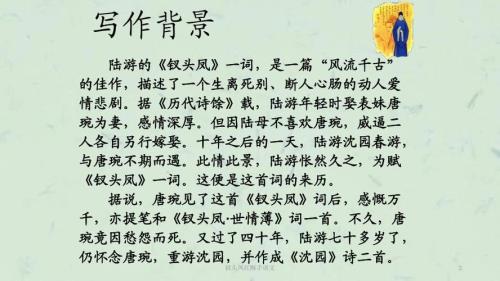 写作背景
陆游的《钗头凤》一词，是一篇“风流千古”
的佳作，描述了一个生离死别、断人心肠的动人爱
情悲剧。据《历代诗馀》载，陆游年轻时娶表妹唐
琬为妻，感情深厚。但因陆母不喜欢唐琬，威逼二
人各自另行嫁娶。十年之后的一天，陆游沈园春游，
与唐琬不期而遇。此情此景，陆游怅然久之，为赋
《钗头凤》一词。这便是这首词的来历。
据说，唐琬见了这首《钗头凤》词后，感慨万
千，亦提笔和《钗头凤·世情薄》词一首。不久，唐
琬竟因愁怨而死。又过了四十年，陆游七十多岁了，
仍怀念唐琬，重游沈园，并作成《沈园》诗二首。
钗头凤红酥手语文